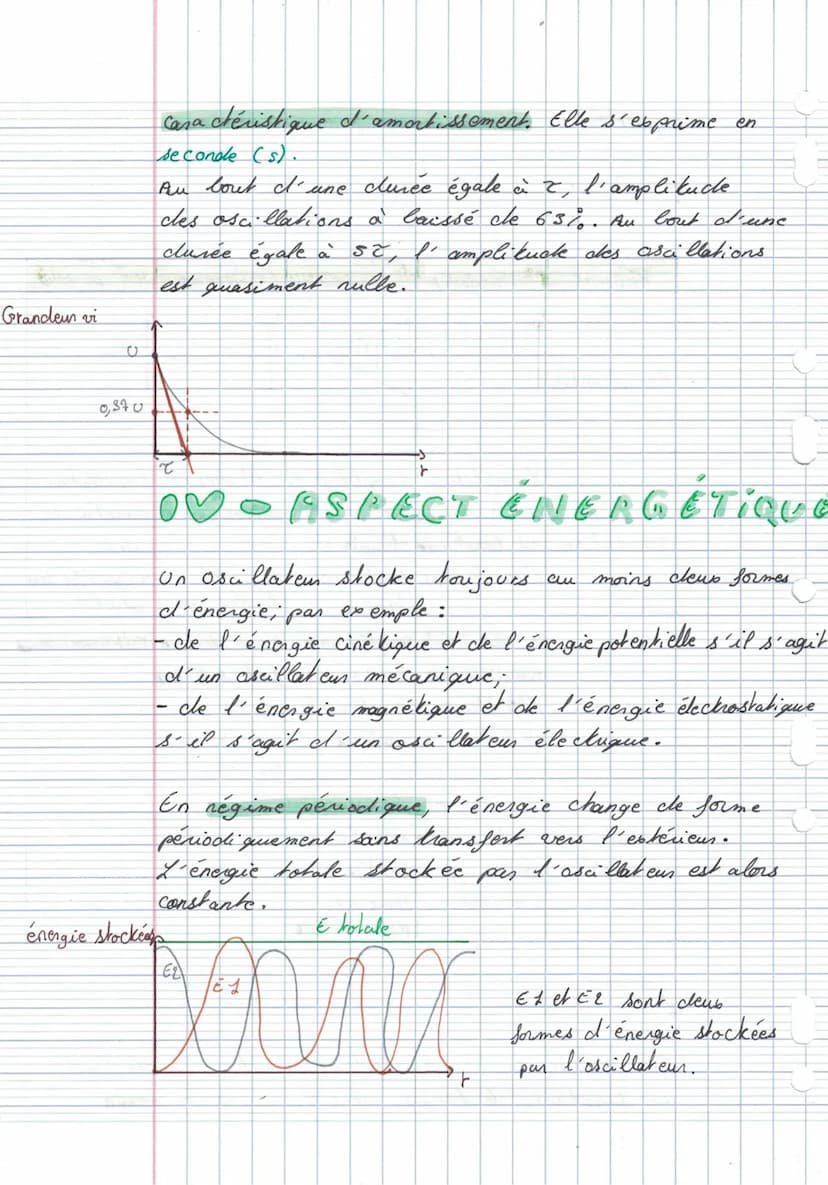 caractéristique d'amortissement. Elle s'exprime en
seconde (s).
Au bout d'une durée égale à τ, l'amplitude
des oscillations à baissé de 63%. Au bout d'une
durée égale à 5τ, l'amplitude des oscillations
est quasiment nulle.
Grandeur vi
U
0,37U
τ
t
IV - ASPECT ÉNERGÉTIQUE
Un oscillateur stocke toujours au moins deux formes
d'énergie; par exemple :
- de l'énergie cinétique et de l'énergie potentielle s'il s'agit
d'un oscillateur mécanique;
- de l'énergie magnétique et de l'énergie électrostatique
s'il s'agit d'un oscillateur électrique.
En régime périodique, l'énergie change de forme
périodiquement sans transfert vers l'extérieur.
L'énergie totale stockée par l'oscillateur est alors
constante.
E totale
énergie stockées
E2
E1
t
E1 et E2 sont deux
formes d'énergie stockées
par l'oscillateur.